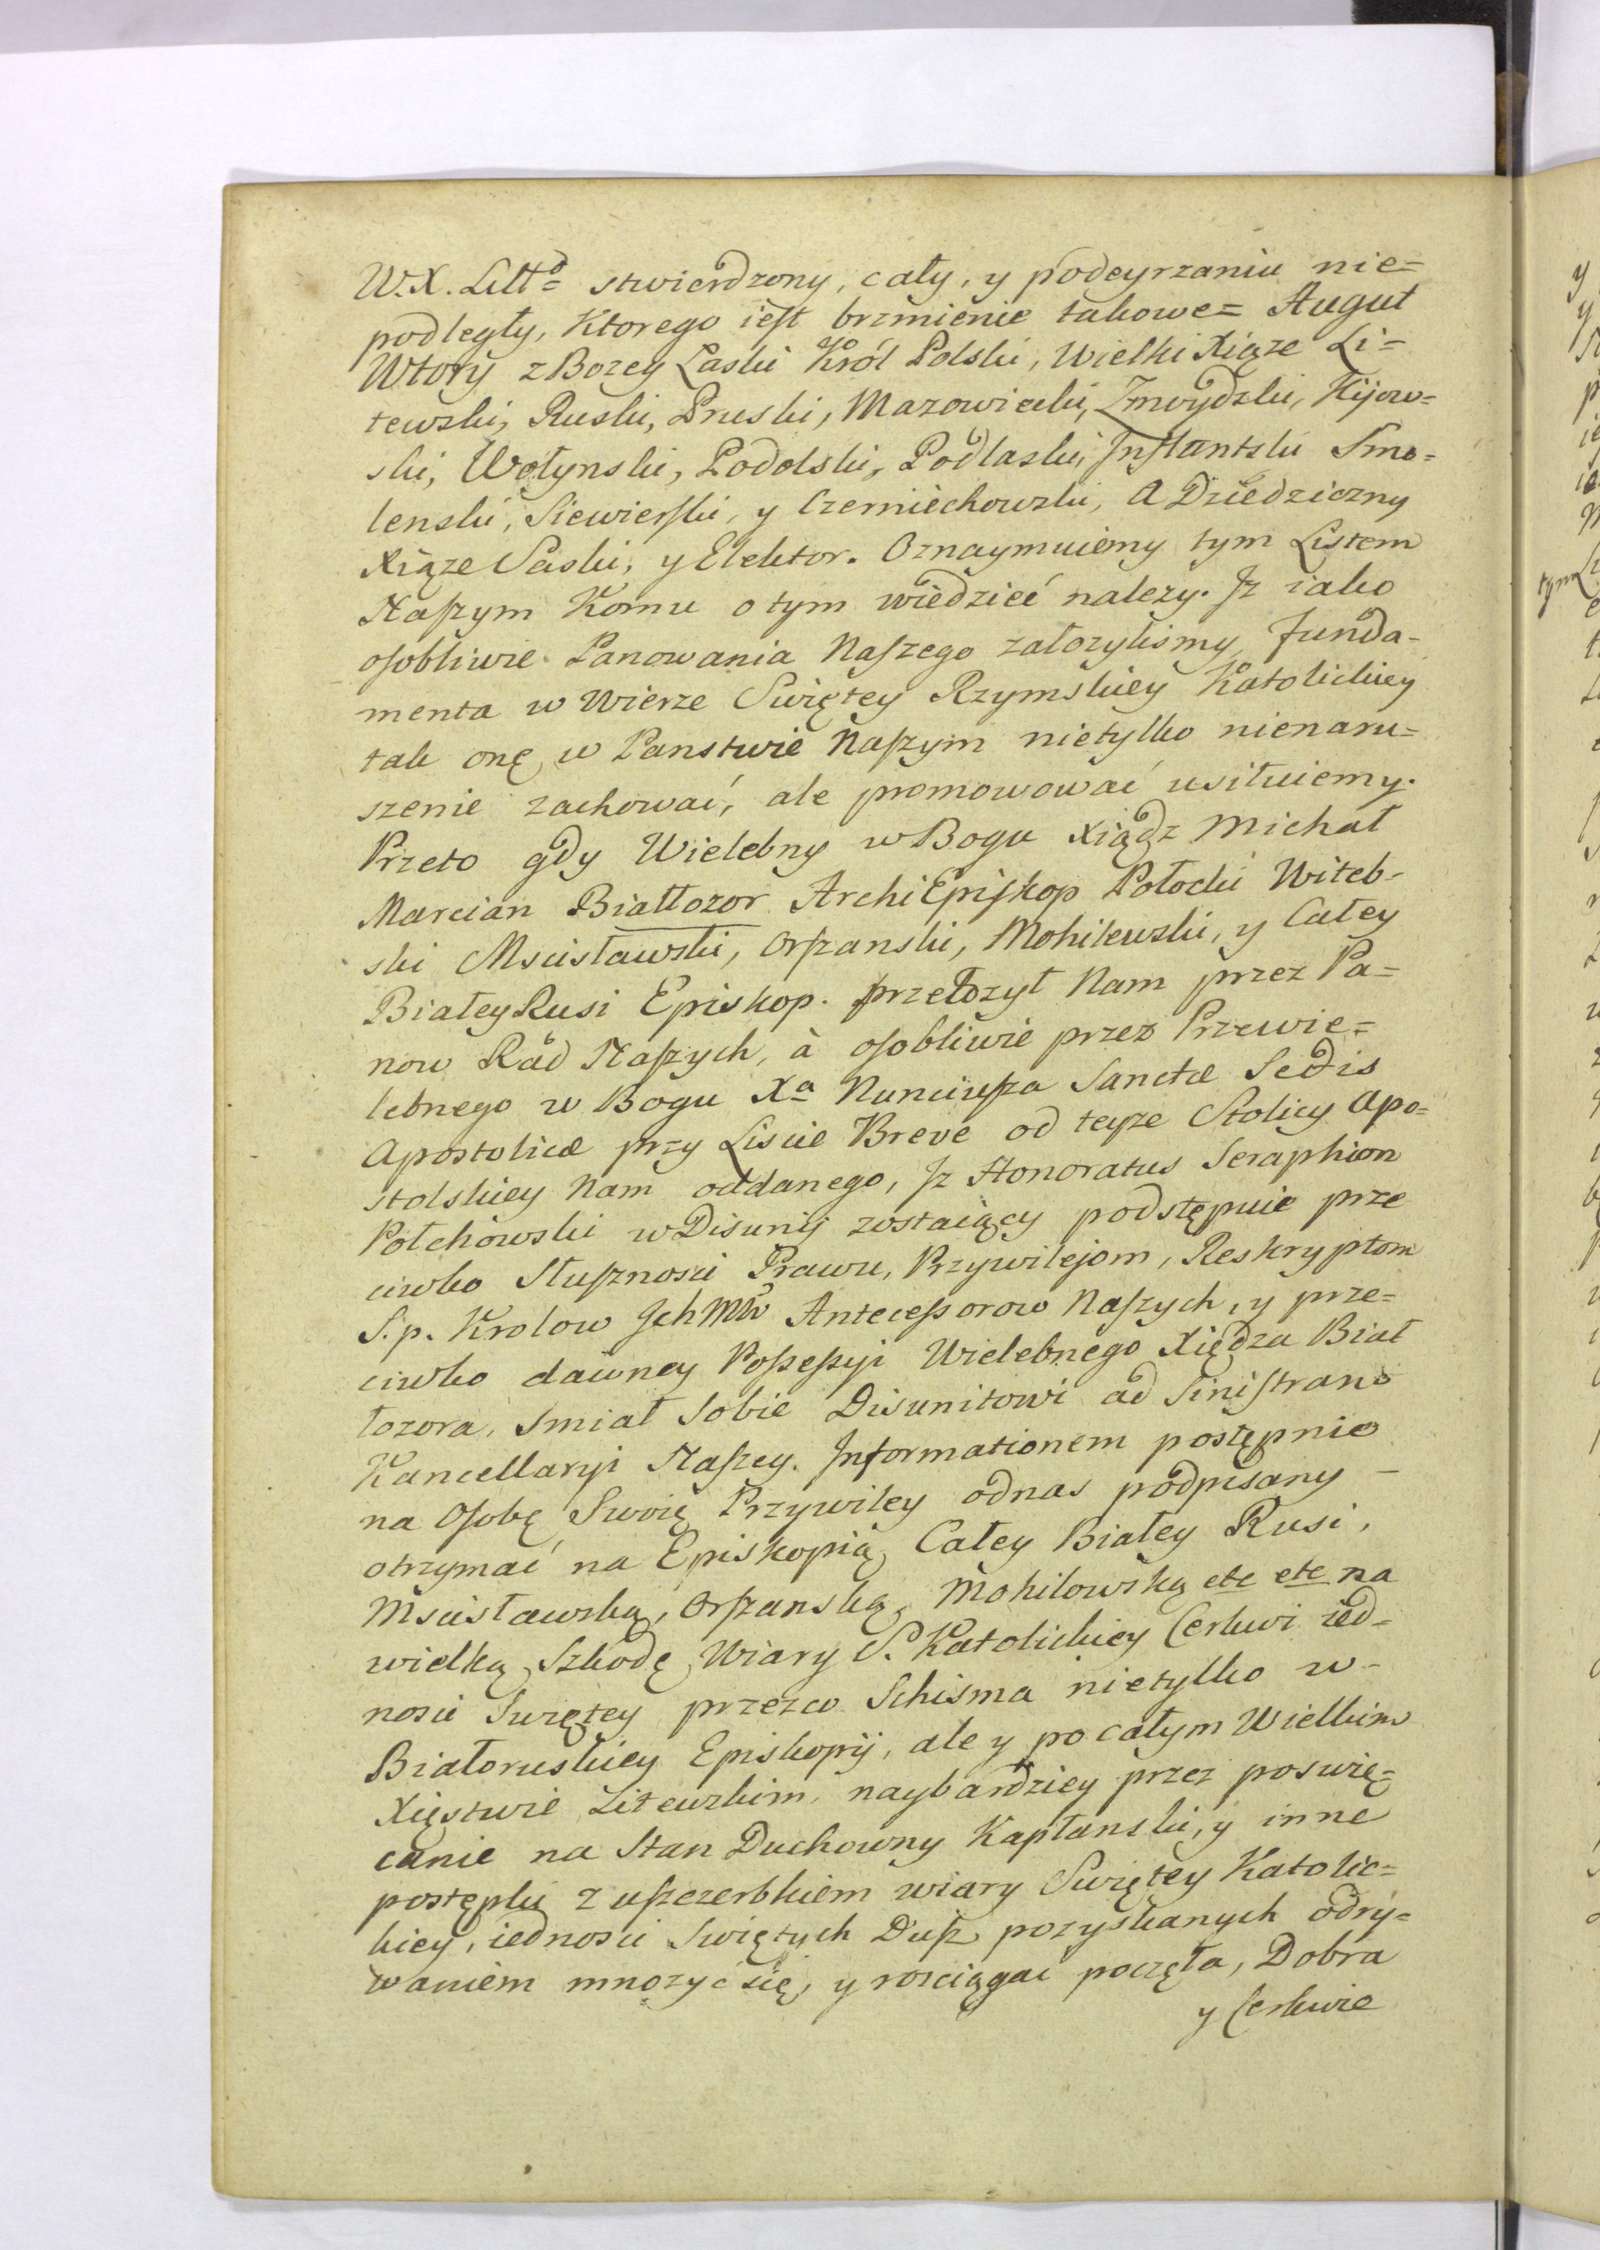 W.X. Littᵒ stwierdzony, cały, y podeyrzaniu nie=
podległy, Ktorego iest brzmienie takowe= Augut
Wtory z Bozey Laski Król Polski, Wielki Xiąze Li=
tewski, Ruski, Pruski, Mazowiecki, Zmoydzki, Kijow=
ski, Wołynski, Podolski, Podlaski, Inflantski Smo=
lenski, Siewierski, y Czerniechowski, A Dziedziczny
Xiąze Saski, y Elektor. Oznaymuiemy tym Listem
Naszym Komu o tym wiedzieć nalezy. Iz iako
osobliwie Panowania Naszego załozylismy funda-
menta w Wierze Swiętey Rzymskiey Katolickiey
tak onę w Panstwie Naszym nietylko nienaru=
szenie zachować, ale promowować usiłuiemy.
Przeto gdy Wielebny w Bogu Xiądz Michał
Marcian Białłozor ArchiEpiskop Połocki Witeb-
ski Mscisławski, Orszanski, Mohilewski, y Całey
Białey Rusi Episkop. przełozył Nam przez Pa=
now Rad Naszych, à osobliwie przez Przewie=
lebnego w Bogu Xᵃ Nunciusza Sanctæ Sedis
Apostolicæ przy Liscie Breve od teyze Stolicy Apo=
stolskiey Nam oddanego, Iz Honoratus Seraphion
Połchowski w Disunij zostaiący podstępnie prze
ciwko Słusznosci Prawu, Przywilejom, Reskryptom
S.p. Krolow Ich Mᶜⁱᵒʷ Antecessorow Naszych, y prze=
ciwko dawney Possessyi Wielebnego Xiędza Biał
łozora, smiał Sobie Disunitowi ad Sinistram
Kancellaryi Naszey. Informationem postępnie
na Osobę Swoię Przywiley odnas podpisany –
otrzymać na Episkopią Całey Białey Rusi,
Mscisławską, Orszanską, Mohilowską etc etc na
wielką Szkodę Wiary S. Katolickiey Cerkwi ied-
nosci Swiętey przezco Schisma nietylko w-
Białoruskiey Episkopij, ale y po całym Wielkim
Xięstwie Litewskim, naybardziey przez poswię=
canie na Stan Duchowny Kapłanski, y inne
postępki z uszczerbkiem wiary Swiętey Katolic=
kiey, iednosci Swiętych Dusz pozyskanych odry=
waniem mnozyć się, y rosciągać poczęła, Dobra
y Cerkwie
tym